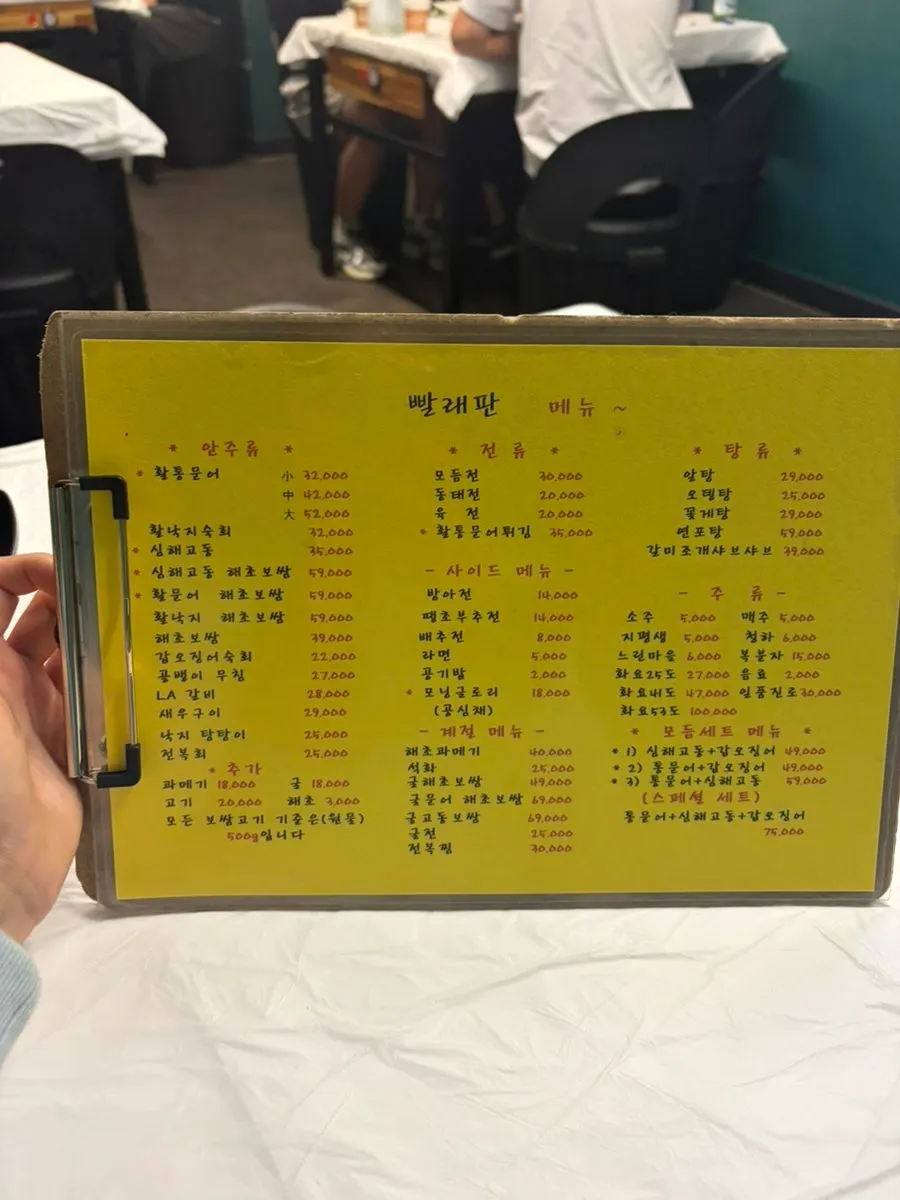 빨래판 메뉴 ~
* 안주류 *
* 활통문어 小 32,000
中 42,000
大 52,000
활낙지숙회 32,000
* 심해고동 35,000
* 심해고동 해초보쌈 59,000
* 활문어 해초보쌈 59,000
활낙지 해초보쌈 59,000
해초보쌈 39,000
갑오징어숙회 22,000
골뱅이 무침 27,000
LA 갈비 28,000
새우구이 29,000
낙지 탕탕이 25,000
전복회 25,000
* 추가
과메기 18,000 굴 18,000
고기 20,000 해초 3,000
모든 보쌈고기 기준은(원물)
500g입니다
* 전류 *
모듬전 30,000
동태전 20,000
육 전 20,000
* 활통문어튀김 35,000
- 사이드 메뉴 -
방아전 14,000
땡초부추전 14,000
배추전 8,000
라면 5,000
공기밥 2,000
* 모닝글로리 18,000
(공심채)
- 계절 메뉴 -
해초과메기 40,000
석화 25,000
굴해초보쌈 49,000
굴문어 해초보쌈 69,000
굴고동보쌈 69,000
굴전 25,000
전복찜 30,000
* 탕류 *
알탕 29,000
오뎅탕 25,000
꽃게탕 29,000
연포탕 59,000
갈미조개샤브샤브 39,000
- 주류 -
소주 5,000 맥주 5,000
지평생 5,000 청하 6,000
느린마을 6,000 복분자 15,000
화요25도 27,000 음료 2,000
화요41도 47,000 일품진로 30,000
화요53도 100,000
* 모듬세트 메뉴 *
* 1) 심해고동+갑오징어 49,000
* 2) 통문어+갑오징어 49,000
* 3) 통문어+심해고동 59,000
(스페셜 세트)
통문어+심해고동+갑오징어
75,000